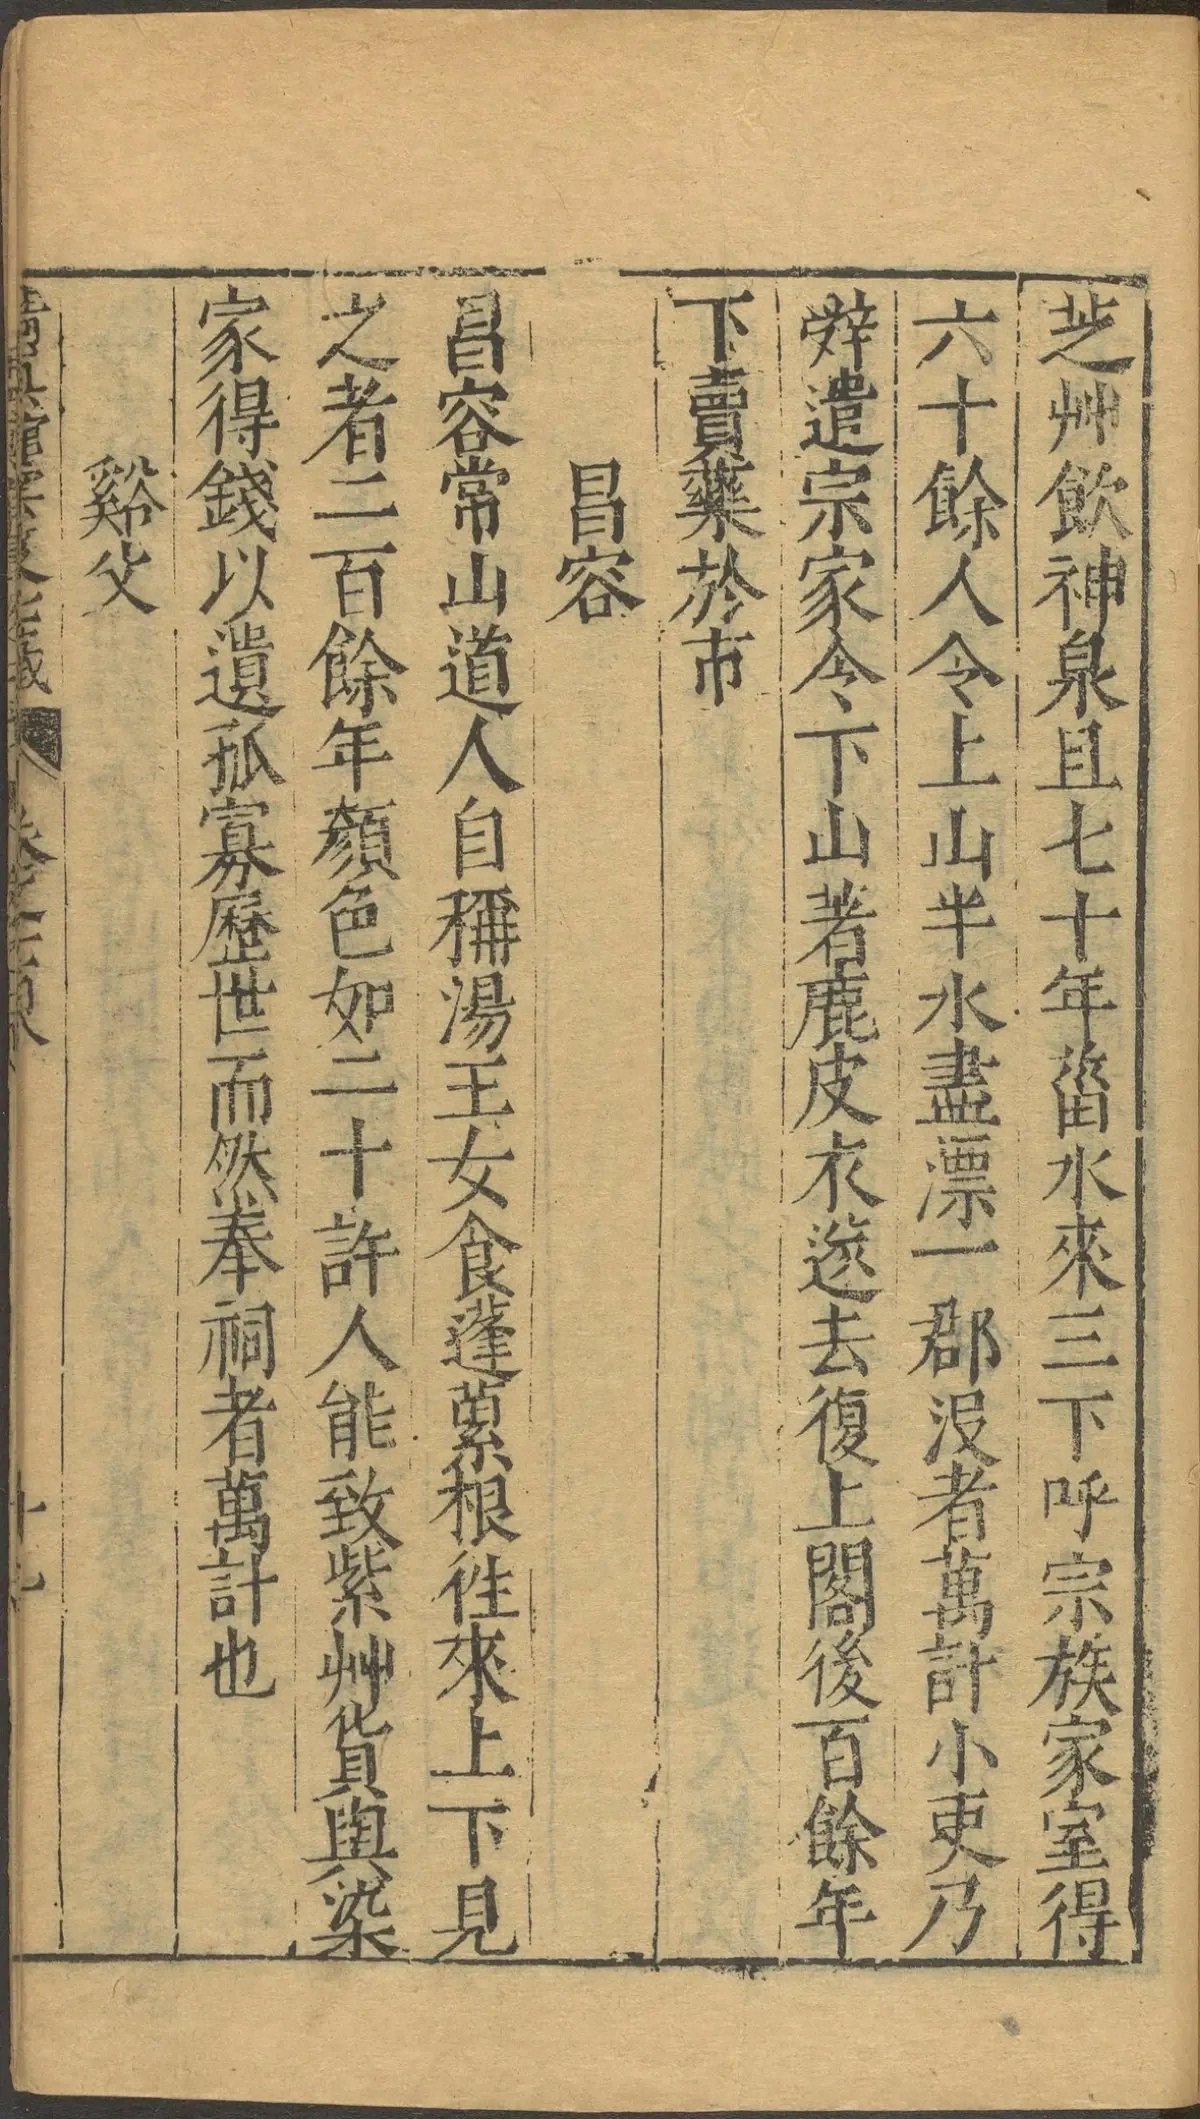 芝艸飲神泉且七十年淄水來三下呼宗族家室得
六十餘人令上山半水盡漂一郡沒者萬計小吏乃
辤遣宗家令下山著鹿皮衣遂去復上閣後百餘年
下賣藥於市
昌容
昌容常山道人自稱湯王女食蓬虆根徃來上下見
之者二百餘年顏色如二十許人能致紫艸貨與染
家得錢以遺孤寡歷世而然奉祠者萬計也
谿父
十九